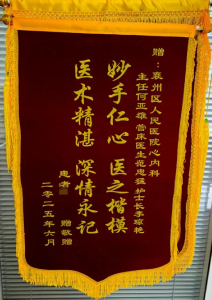 赠：襄州区人民医院心内科
主任何亚雄 管床医生范忠猛 护士长李琼艳
妙手仁心 医之楷模
医术精湛 深情永记
患者
赠敬赠
二零二五年六月